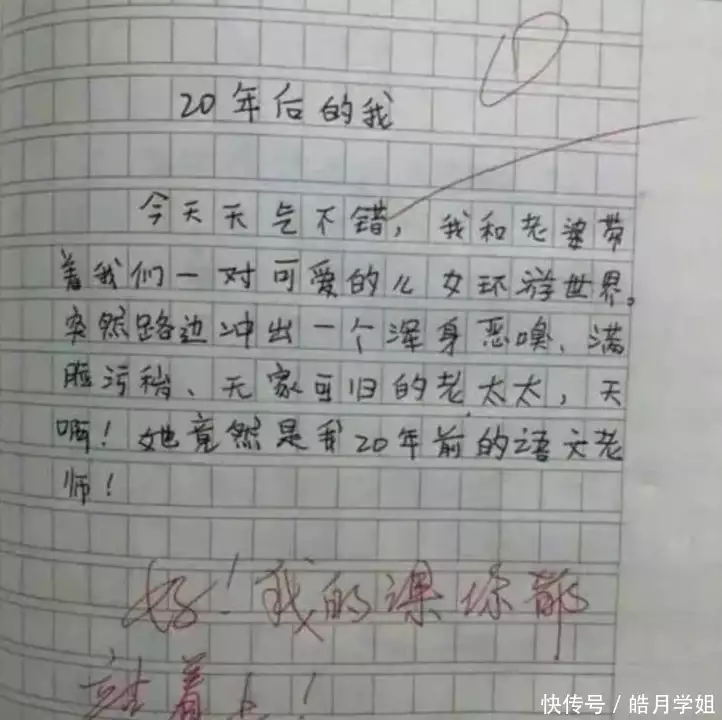 20年后的我
今天天气不错，我和老婆带
着我们一对可爱的儿女环游世界。
突然路边冲出一个浑身恶嗅、满
脸污秽、无家可归的老太太，天
啊！她竟然是我20年前的语文老
师！
好！我的课你都
站着上！
快传号／皓月学姐